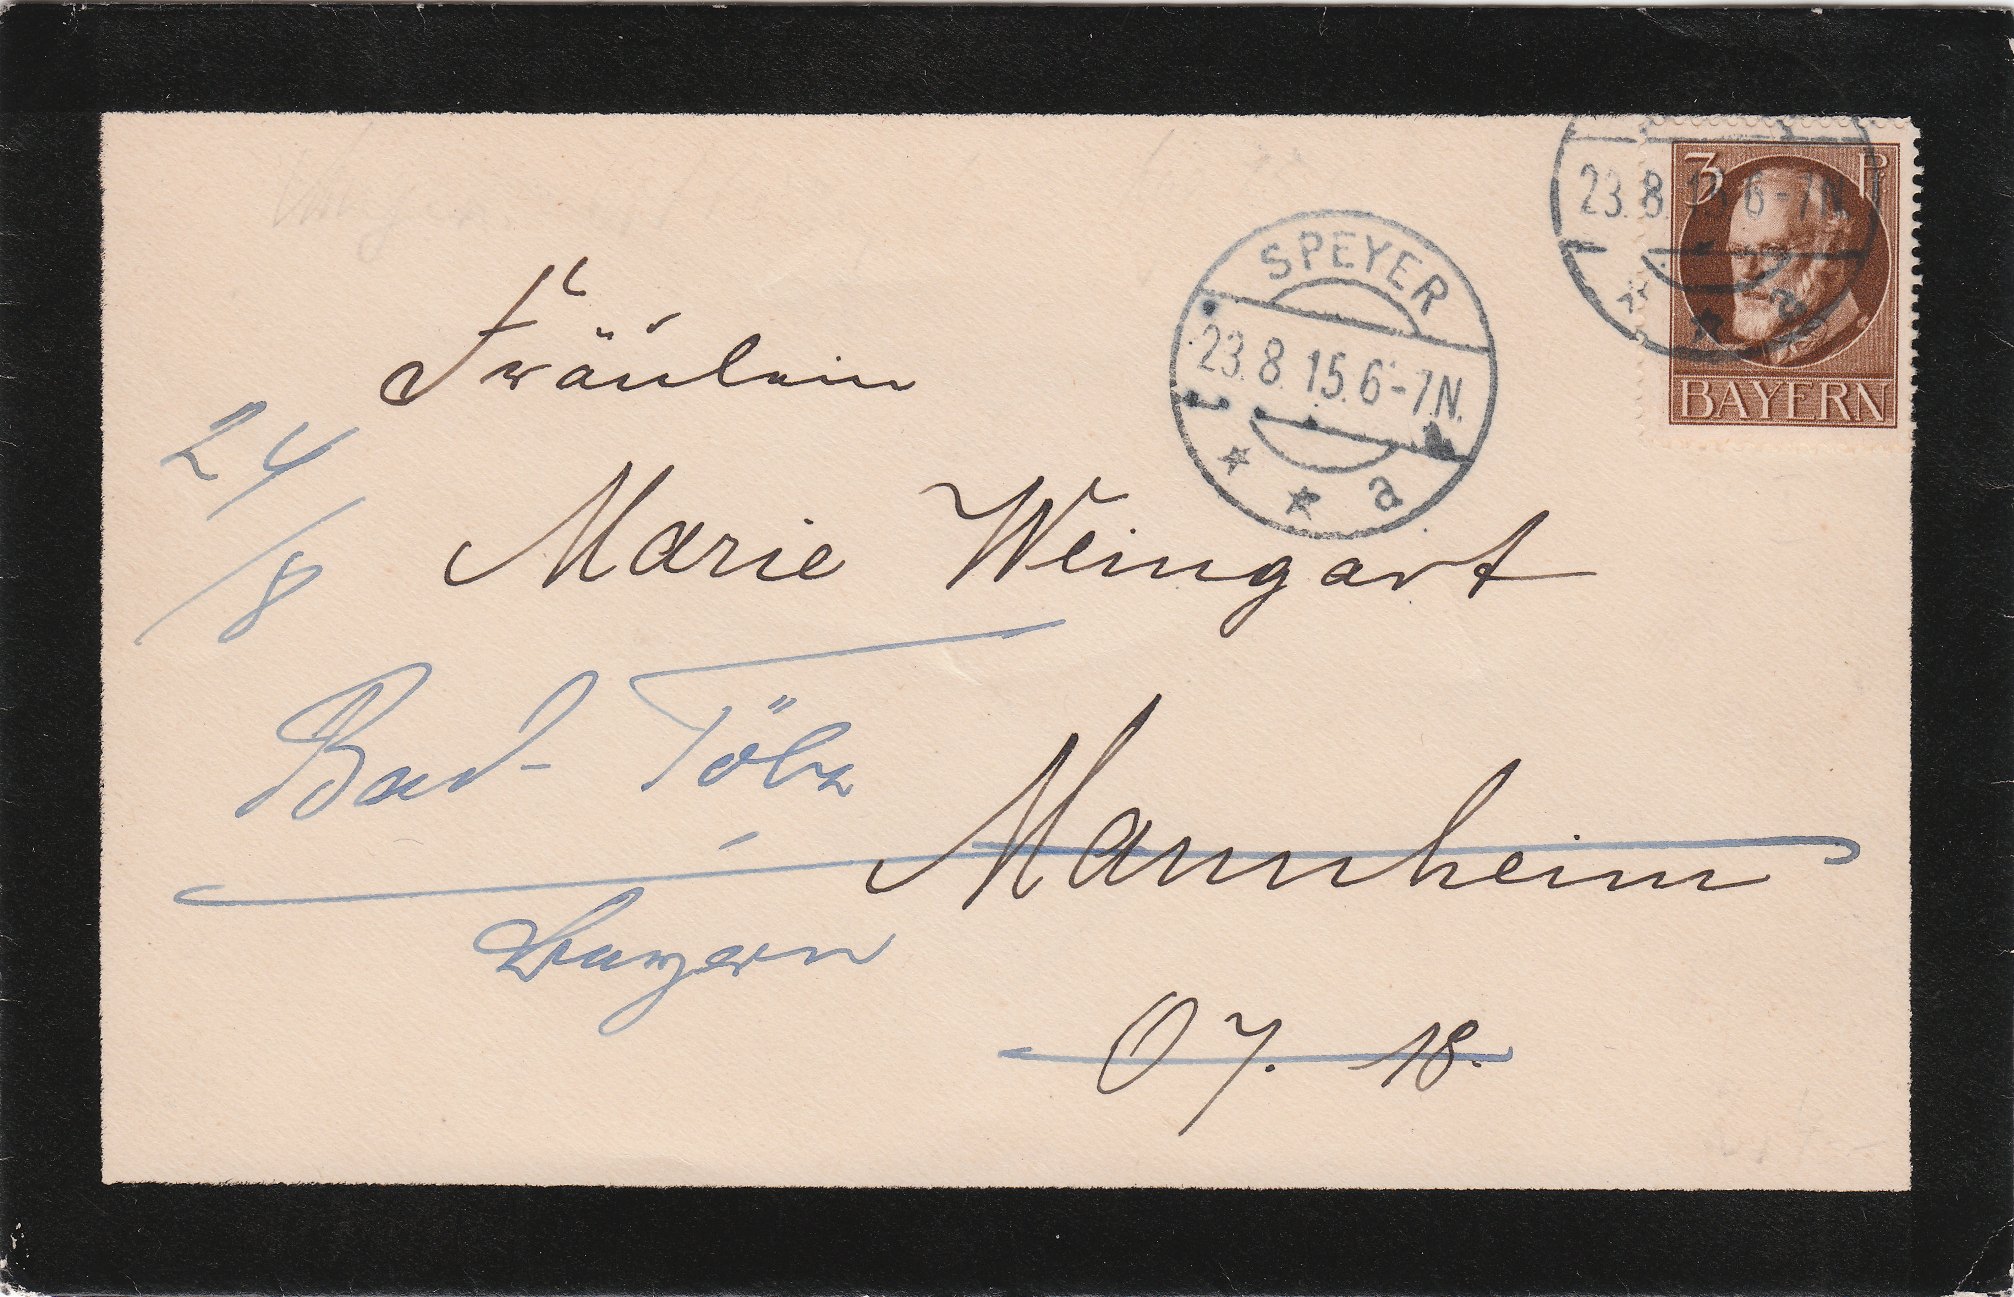 3 Pf
BAYERN
23.8.15.6-7N.
SPEYER
23.8.15.6-7N.
* * a
Fräulein
24/8
Marie Weingart
Bad-Tölz
Mannheim
Bayern
O 7. 18.